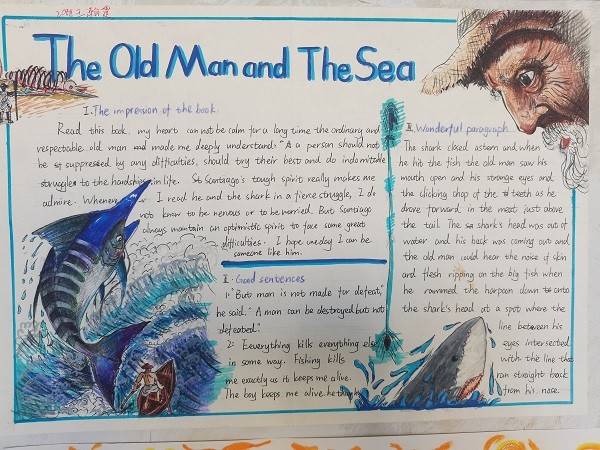 The Old Man and The Sea
I. The impression of the book.
Read this book, my heart can not be calm for a long time the ordinary and
respectable old man and made me deeply understand: "A a person should not
be st suppressed by any difficulties, should try their best and do indomitable
struggles to the hardships in life. So Santiago's tough spirit really makes me
admire. Whenever I read he and the shark in a fierce struggle, I do
not know to be nervous or to be worried. But Santiago
always maintain an optimistic spirit to face some great
difficulties. I hope one day I can be
someone like him.
II. Good sentences
1: "But man is not made for defeat,"
he said. "A man can be destroyed but not
defeated."
2: Eeverything kills everything else
in some way. Fishing kills
me exactly as it keeps me alive.
The boy keeps me alive. he thought
III. Wonderful paragraph
The shark closed astern and when
he hit the fish the old man saw his
mouth open and his strange eyes and
the clicking chop of the teeth as he
drove forward in the meat just above
the tail. The shark's head was out of
water and his back was coming out and
the old man could hear the noise of skin
and flesh ripping on the big fish when
he rammed the harpoon down onto
the shark's head at a spot where the
line between his
eyes intersected
with the line that
ran straight back
from his nose.